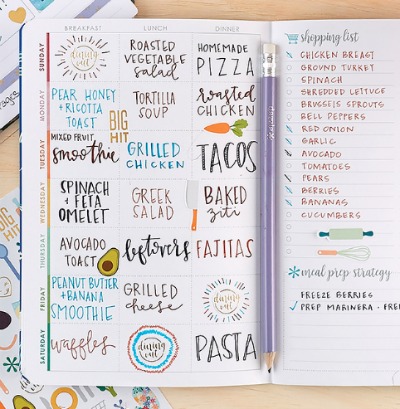 BREAKFAST
LUNCH
DINNER
SUNDAY
dining out
ROASTED
VEGETABLE
salad
HOMEMADE
PIZZA
MONDAY
PEAR HONEY
+ RICOTTA
TOAST
BIG
HIT
TORTILLA
SOUP
roasted
CHICKEN
TUESDAY
MIXED FRUIT
smoothie
GRILLED
CHICKEN
TACOS
WEDNESDAY
SPINACH
+ FETA
OMELET
GREEK
SALAD
BAKED
ziti
THURSDAY
AVOCADO
TOAST
leftovers
FAJITAS
FRIDAY
PEANUT BUTTER
+ BANANA
SMOOTHIE
GRILLED
cheese
dining out
SATURDAY
waffles
dining out
PASTA
shopping list
CHICKEN BREAST
GROUND TURKEY
SPINACH
SHREDDED LETTUCE
BRUSSELS SPROUTS
BELL PEPPERS
RED ONION
GARLIC
AVOCADO
TOMATOES
PEARS
BERRIES
BANANAS
CUCUMBERS
meal prep strategy
FREEZE BERRIES
✓ PREP MARINERA - FREE
BIG
HIT
dining out